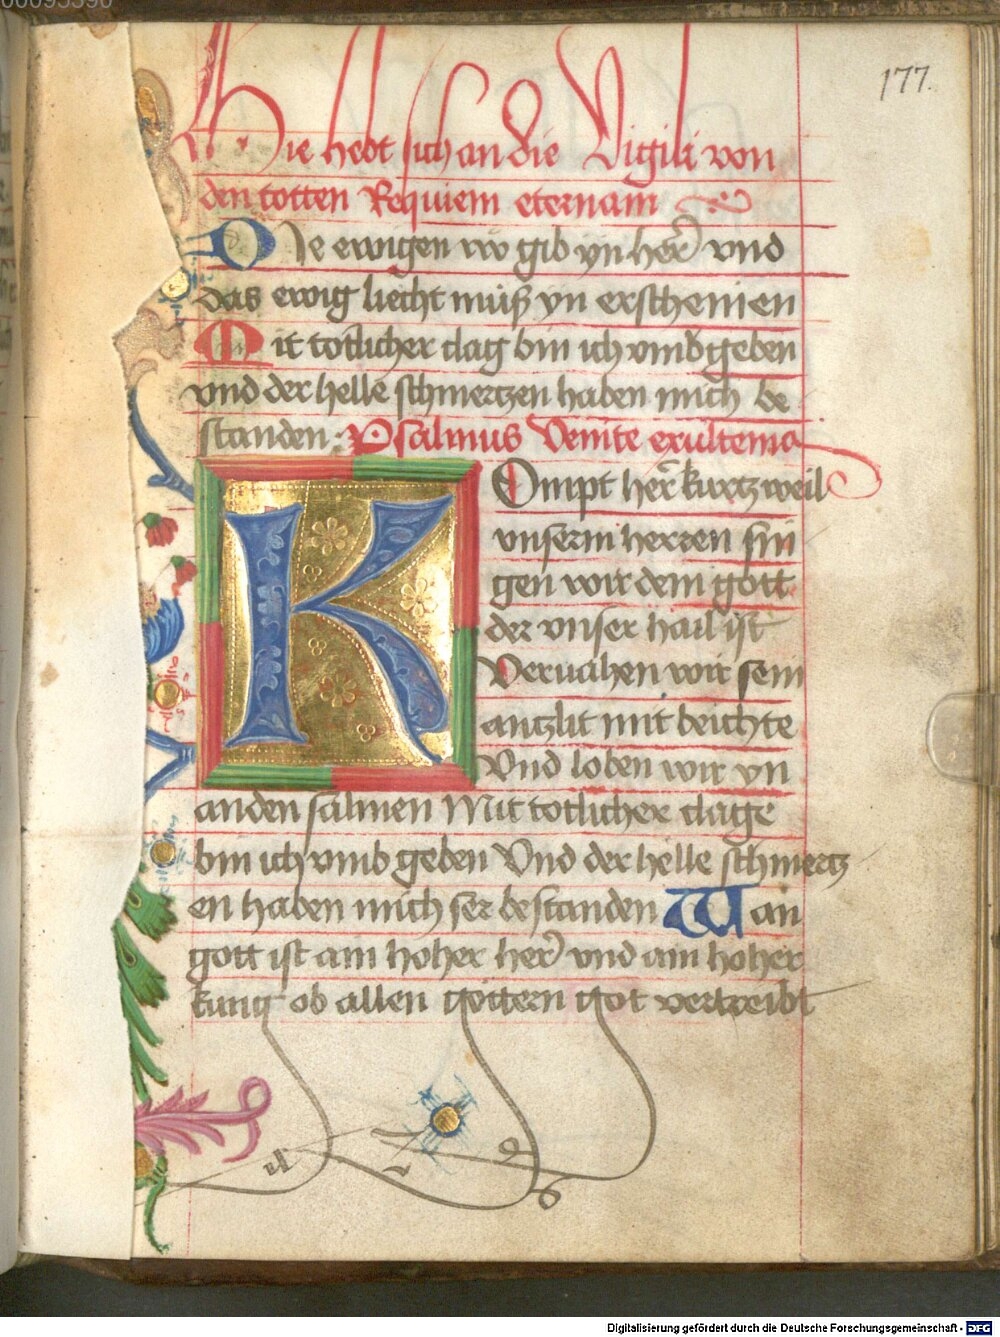 177.
Hie hebt sich an die Vigili von
den totten Requiem eternam
Die ewigen rw gib yn her vnd
das ewig liecht muß yn erscheinen
Mit totlicher clag bin ich vmbgeben
vnd der helle schmertzen haben mich be
standen. Psalmus Venite exultemo
Kompt her kurtzweil
vnserm herren sin
gen wir dem gott
der vnser hail ist
Veruahen wir sein
antzlit mit beichte
Vnd loben wir yn
an den salmen Mit totlicher clage
bin ich vmb geben Vnd der helle schmertz
en haben mich ser bestanden Wan
gott ist ain hoher her vnd ain hoher
kung ob allen gottern got vertreibt
Digitalisierung gefördert durch die Deutsche Forschungsgemeinschaft - DFG